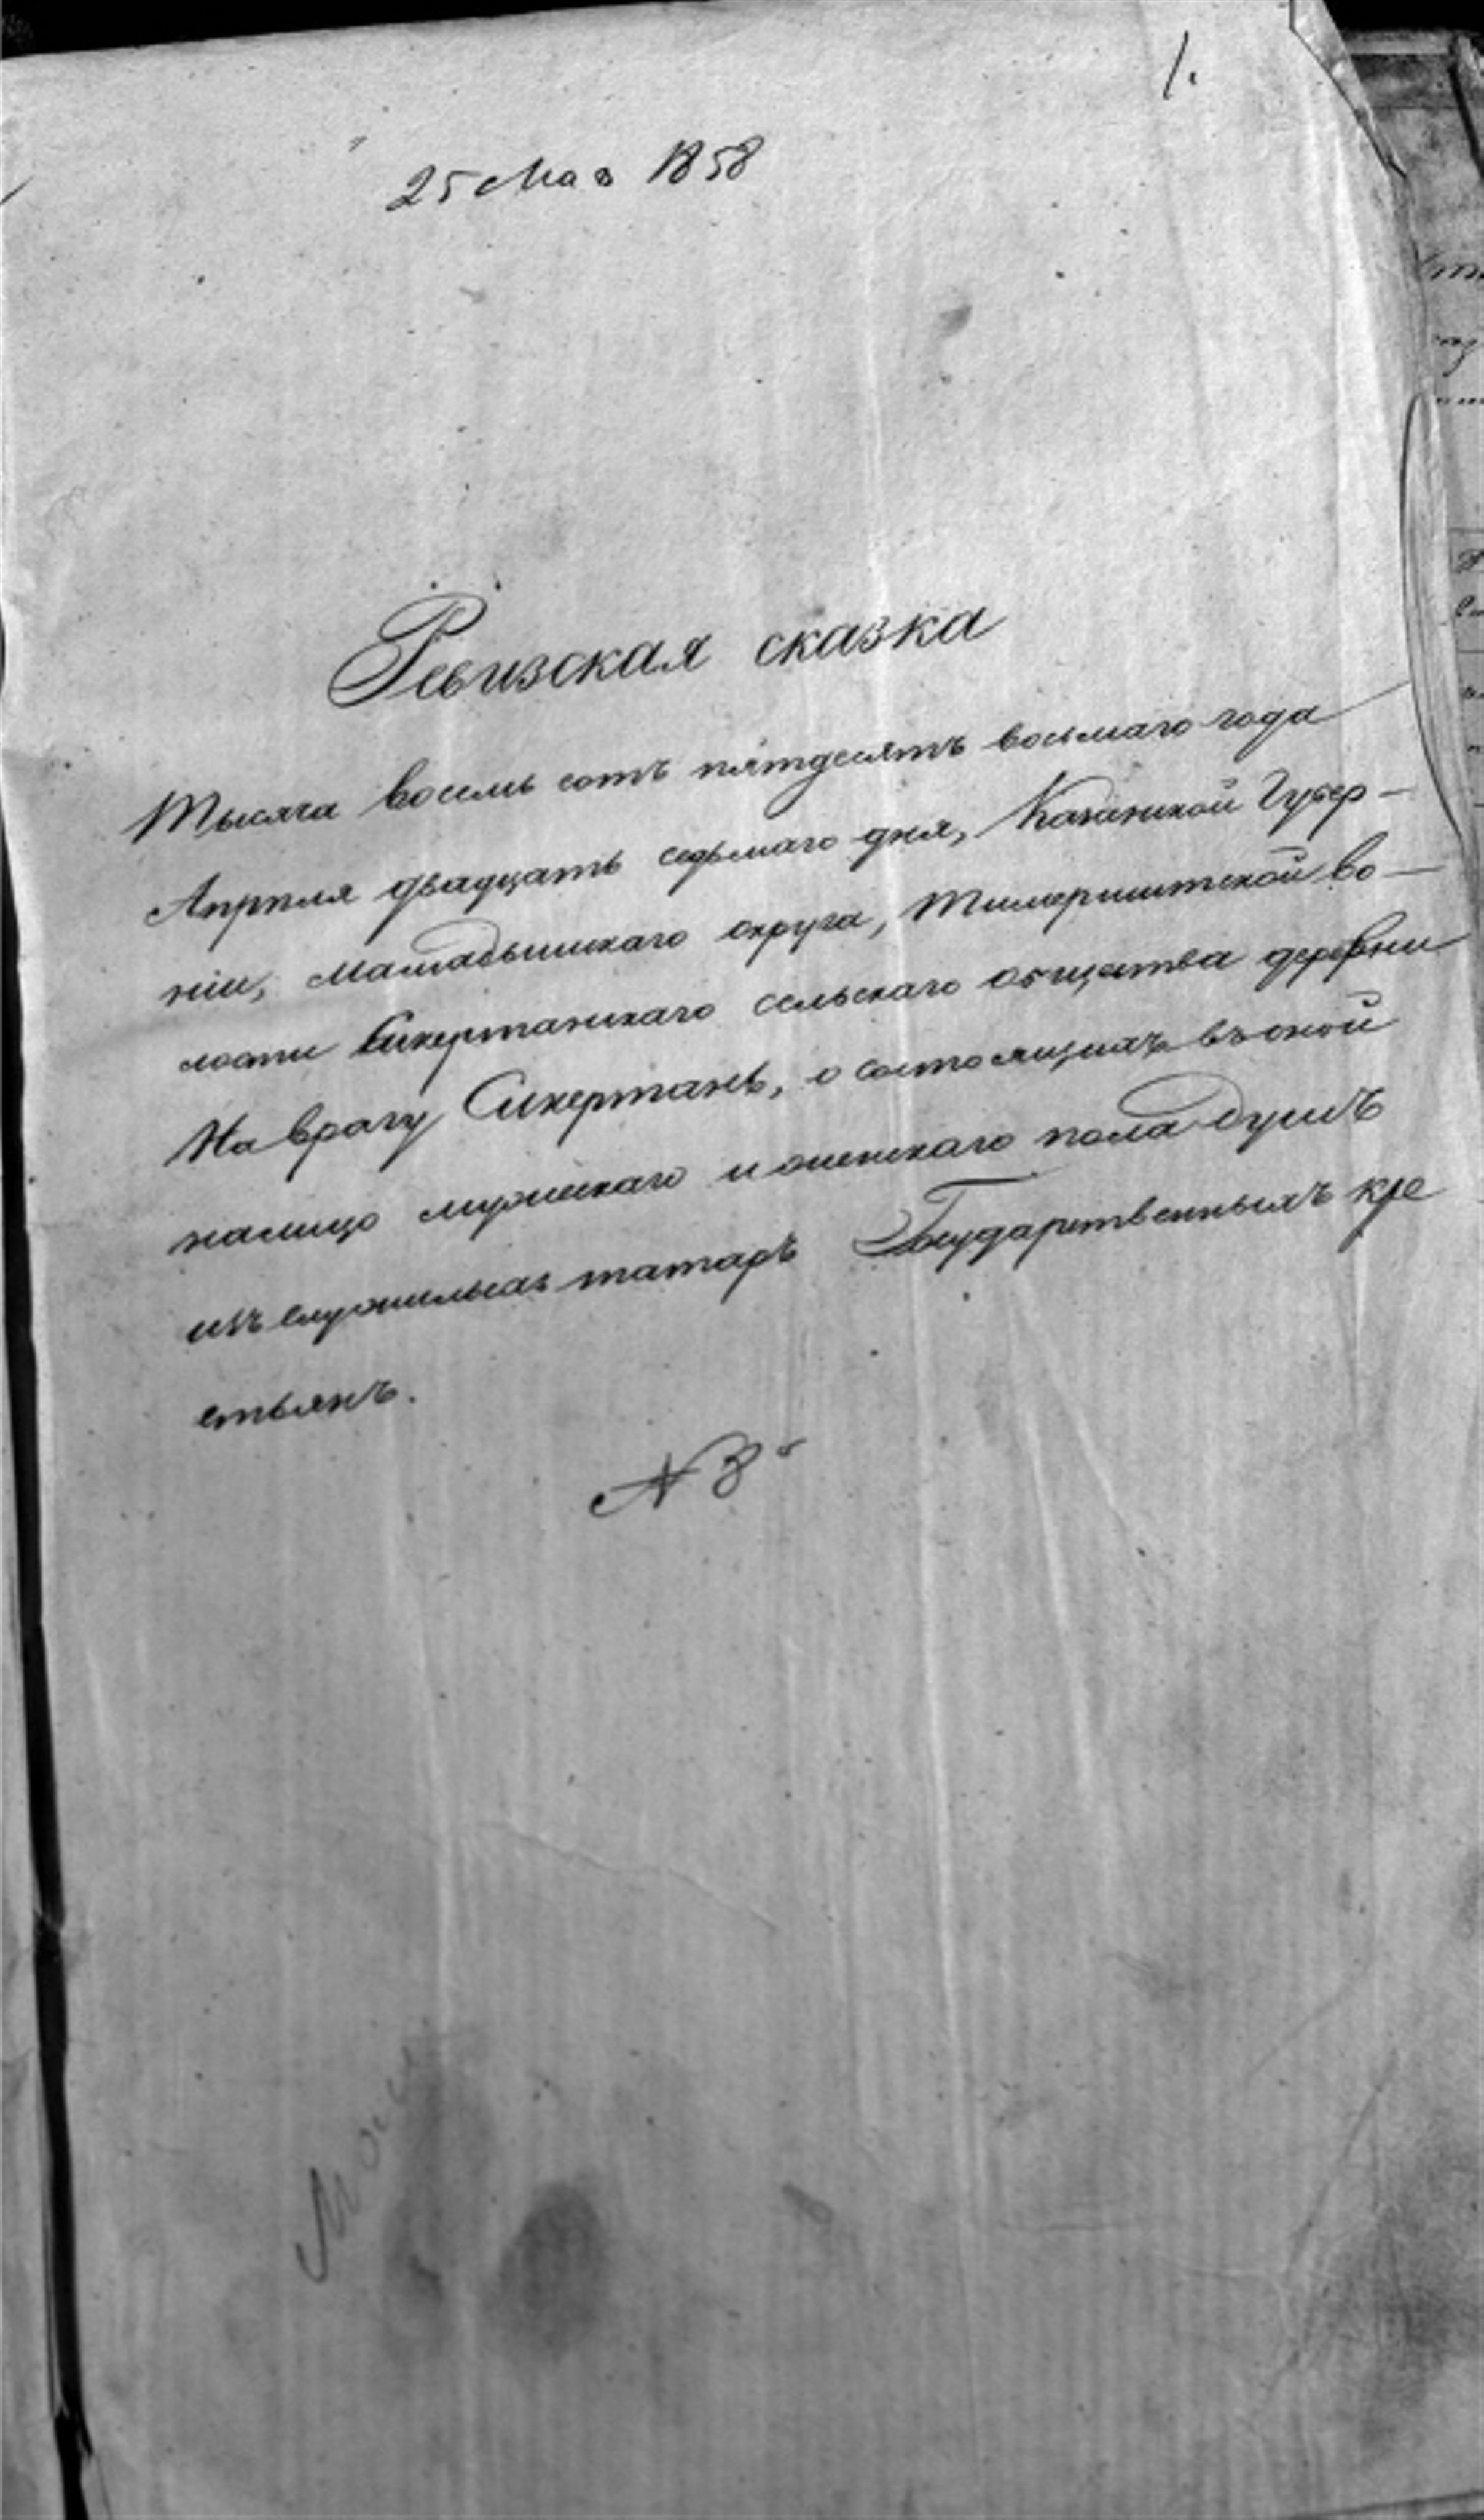 1.
25 Мая 1858
Ревизская сказка
Тысяча восемь сотъ пятдесятъ восьмаго года
Апрѣля двадцать седьмаго дня, Казанской Губер-
ніи, Мамадышскаго округа, Тимершитской во-
лости Сикертанскаго сельскаго общества деревни
На врагу Сикертанъ, о состоящихъ въ оной
налицо мужескаго и женскаго пола душъ
изъ служилыхъ татаръ Государственныхъ кре
стьянъ.
№ 8